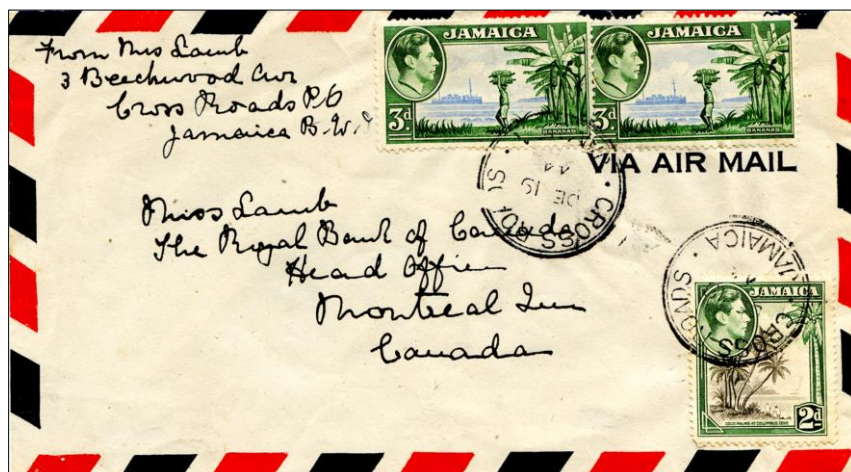 From Mrs Lamb
3 Beechwood Ave
Cross Roads P.O
Jamaica B.W.I
JAMAICA
3d
BANANAS
JAMAICA
3d
BANANAS
VIA AIR MAIL
CROSS ROADS
DE 19
44
Miss Lamb
The Royal Bank of Canada
Head Office
Montreal
Canada
CROSS ROADS
JAMAICA
JAMAICA
COCO PALMS AT COLUMBUS COVE
2d